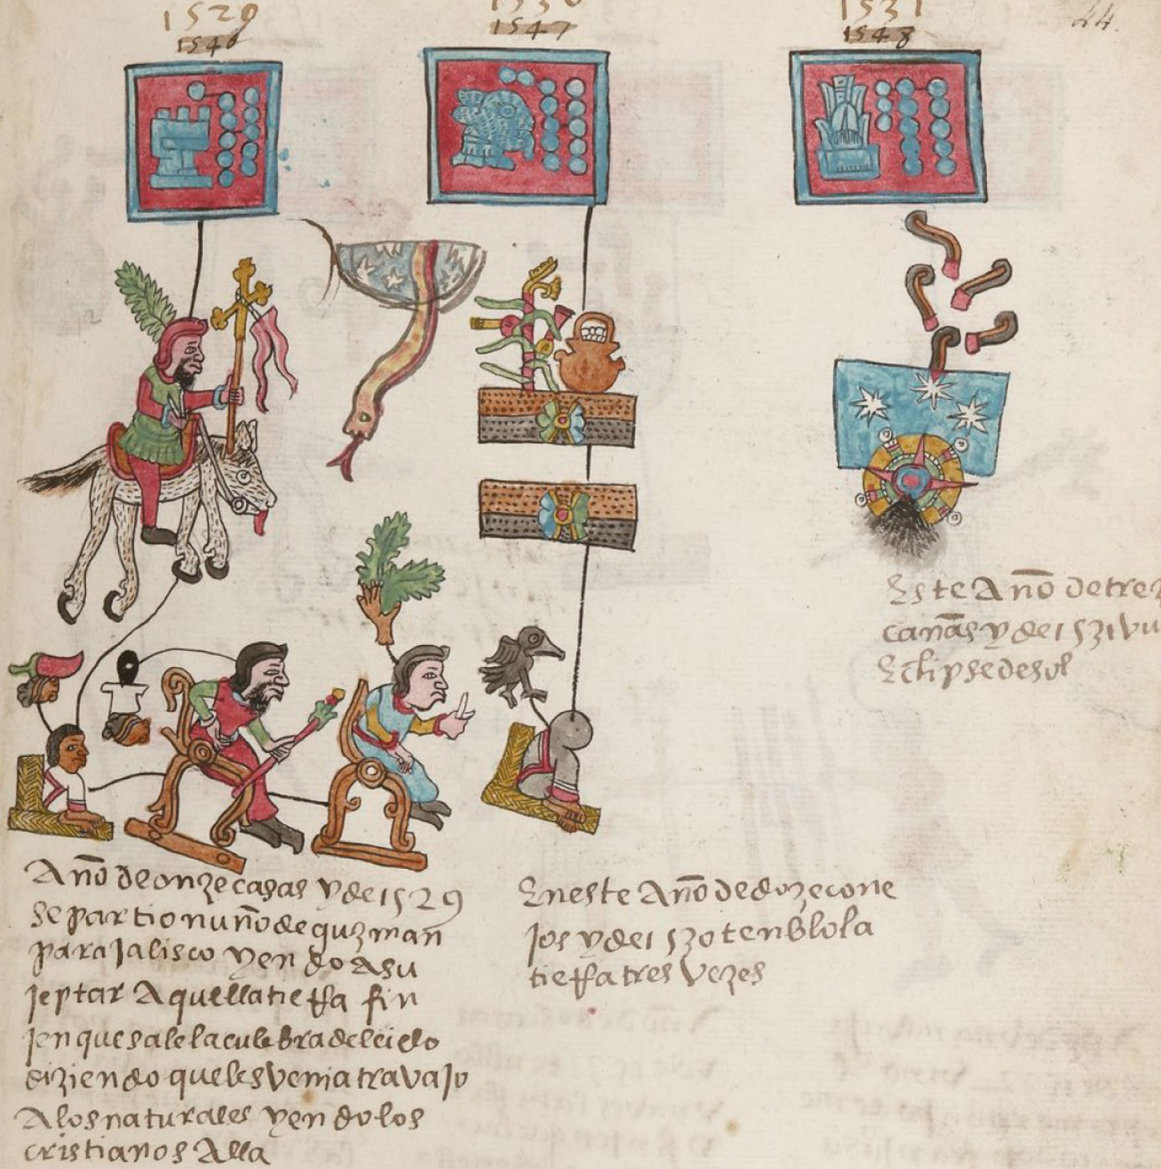 1529
1546
1530
1547
1531
1548
44.
Año de onze casas y de 1529
se partio nuño de guzman
para Jalisco yendo a su
jeptar Aquella tieRa fin
jen que sale la culebra del cielo
diziendo que les venia travajo
A los naturales yendo los
cristianos Alla
En este Año de doze cone
jos y de 1530 tenblo la
tieRa tres vezes
Este Año de trez
cañas y de 1531 vu
Eclipse de sol